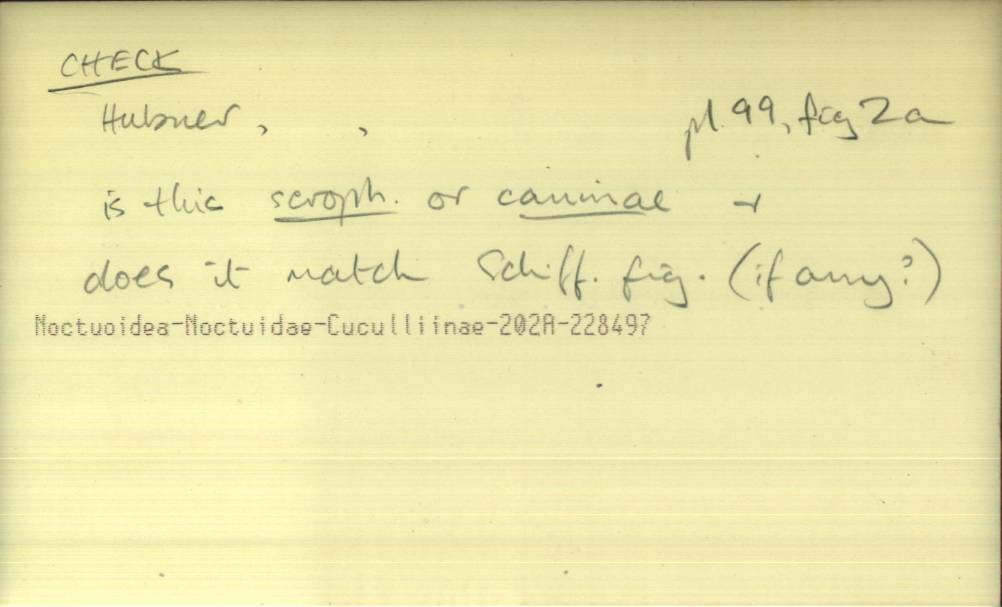 CHECK
Hubner, , pl. 99, fig 2a
is this scroph. or caninae +
does it match Schiff. fig. (if any?)
Noctuoidea-Noctuidae-Cuculliinae-202A-228497